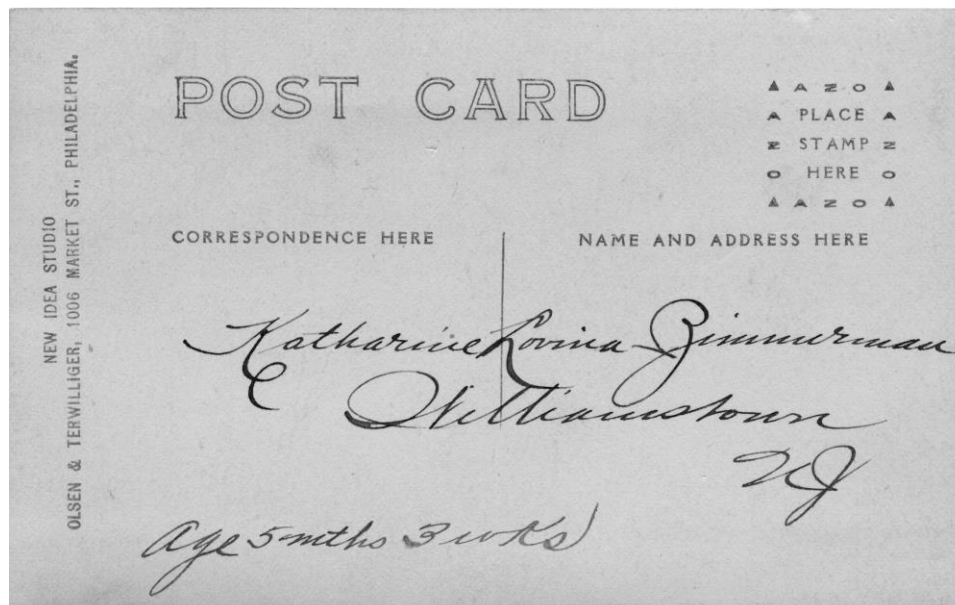 NEW IDEA STUDIO
OLSEN & TERWILLIGER, 1006 MARKET ST., PHILADELPHIA.
POST CARD
AZO
A PLACE A
Z STAMP Z
O HERE O
AZO
CORRESPONDENCE HERE
NAME AND ADDRESS HERE
Katharine Lovina Zimmerman
Williamstown
NJ
Age 5 mths 3 wks